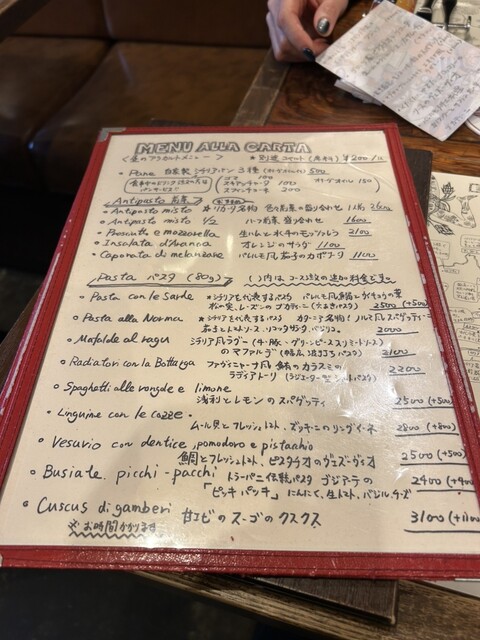 MENU ALLA CARTA
<昼のアラカルトメニュー> ＊別途コペルト(席料) ¥200/1人
・Pane 自家製シチリアパン3種 500
ゴマ 100
スキアッチャータ 100
スフィンチョーネ 200
オリーブオイル 150
Antipasto 前菜
・Antipasto misto 1人前 2600
・Antipasto misto 1/2 ハーフ前菜盛り合わせ 1600
・Prosciutto e mozzarella 生ハムと水牛のモッツァレラ 2100
・Insalata d'Arancia オレンジのサラダ 1100
・Caponata di melanzane パレルモ風茄子のカポナータ 1100
Pasta パスタ (80g) ( )内はコース注文の追加料金です
・Pasta con le Sarde ＊シチリアを代表するパスタ パレルモ風鰯と
松の実、レーズンのブカティーニ(穴あきパスタ) 2500 (+500)
・Pasta alla Norma ＊シチリアを代表するパスタ カターニア名物! ノルマ風スパゲッティ
茄子とトマトソース、リコッタサラータ、バジリコ 2000
・Mafalde al ragu シチリア風ラグー(牛・豚、グリーンピース
のマファルデ(幅広、波うちパスタ) 2100
・Radiatori con la Bottarga ファヴィニャーナ風 鮪のカラスミの
ラディアトーリ 2200
・Spaghetti alle vongole e limone
浅利とレモンのスパゲッティ 2500 (+500)
・Linguine con le cozze
ムール貝とフレッシュトマト、ズッキーニのリングイーネ 2800 (+800)
・Vesuvio con dentice, pomodoro e pistacchio
鯛とフレッシュトマト、ピスタチオのヴェズーヴィオ 2500 (+500)
・Busiate picchi-pacchi トラーパニ伝統パスタ ブジアーテの
「ピッキパッキ」 にんにく、生トマト、バジル、チーズ 2400 (+400)
・Cuscus di gamberi 甘エビのスーゴのクスクス
※お時間かかります 3100 (+1100)